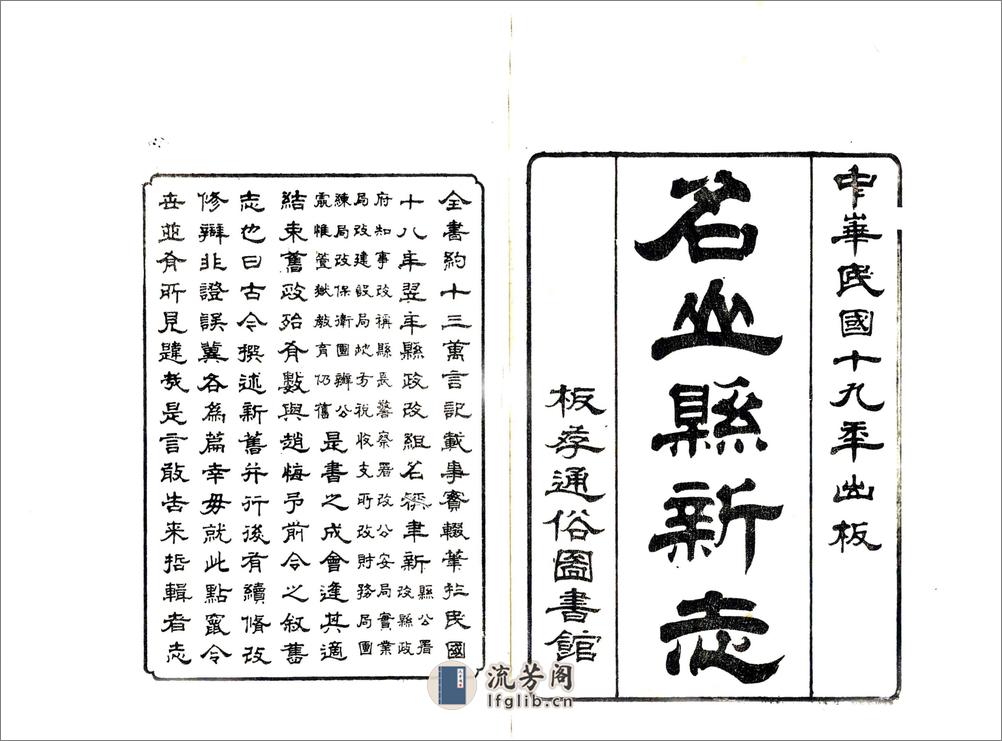 中華民國十九年出板
名山縣新志
板存通俗圖書館
全書約十三萬言記載事實輟筆於民國
十八年翌年縣政改組名稱聿新縣公署改縣政
府知事改稱縣長警察署改公安局實業
局改建設局地方稅收支所改財務局團
練局改保衛團辦公
處惟管獄教育仍舊
是書之成會逢其適
結束舊政殆有數與趙悔予前令之敘舊
志也曰古今撰述新舊并行後有續脩改
修辯非證誤冀各為篇幸毋就此點竄今
世並有所見韙哉是言敢告来哲輯者志
流芳阁
lfglib.cn